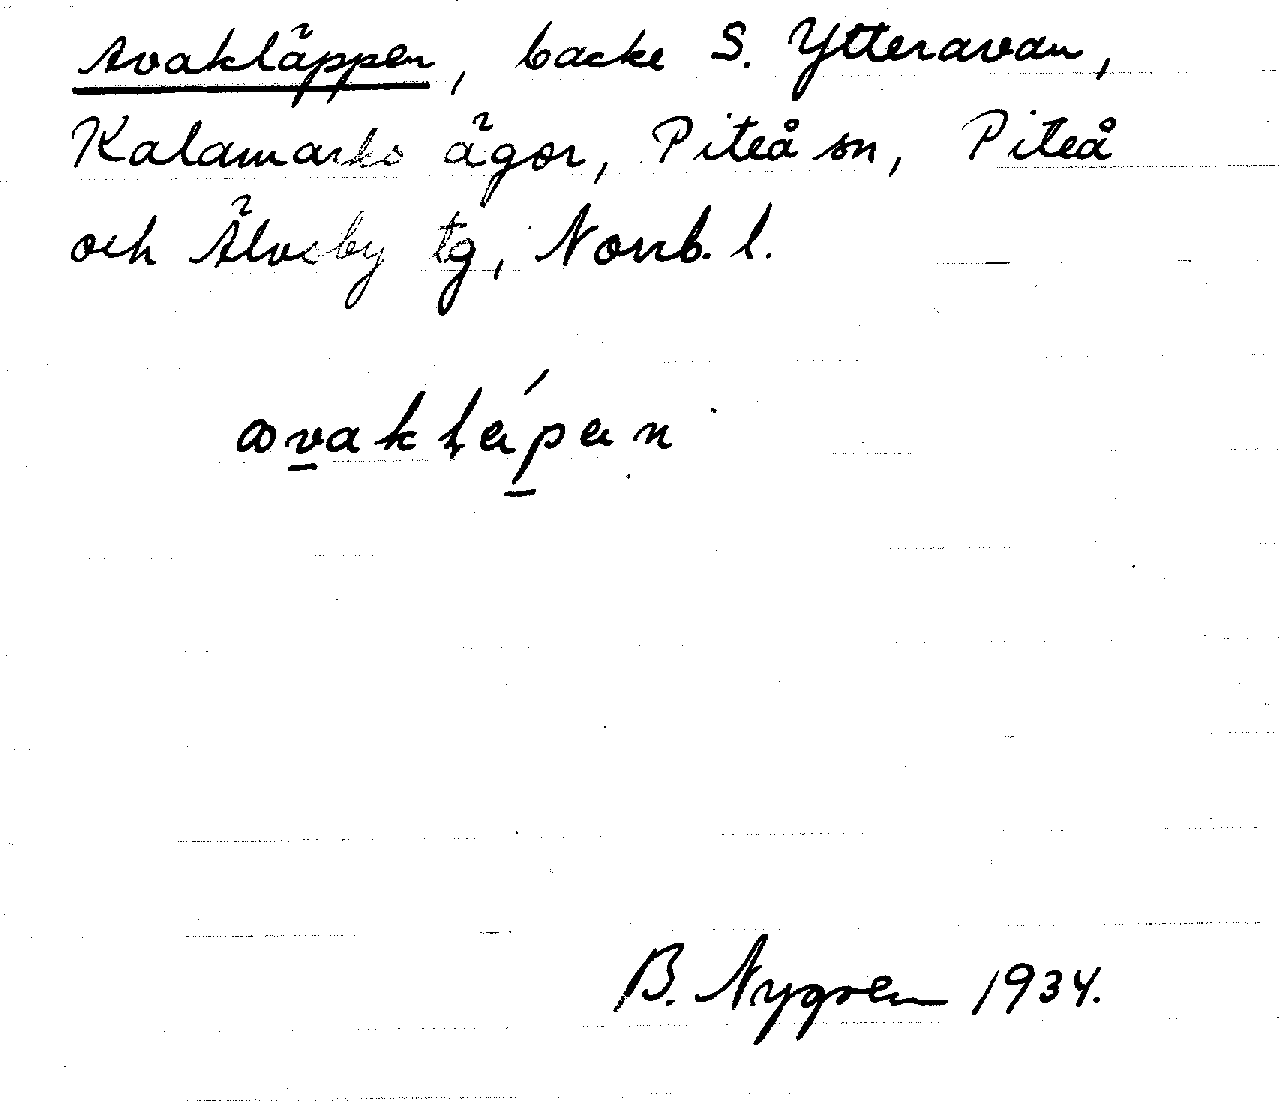 Avakläppen, backe S. Ytteravan,
Kalamarks ägor, Piteå sn, Piteå
och Älvsby tg, Norrb. l.
B. Nygren 1934.